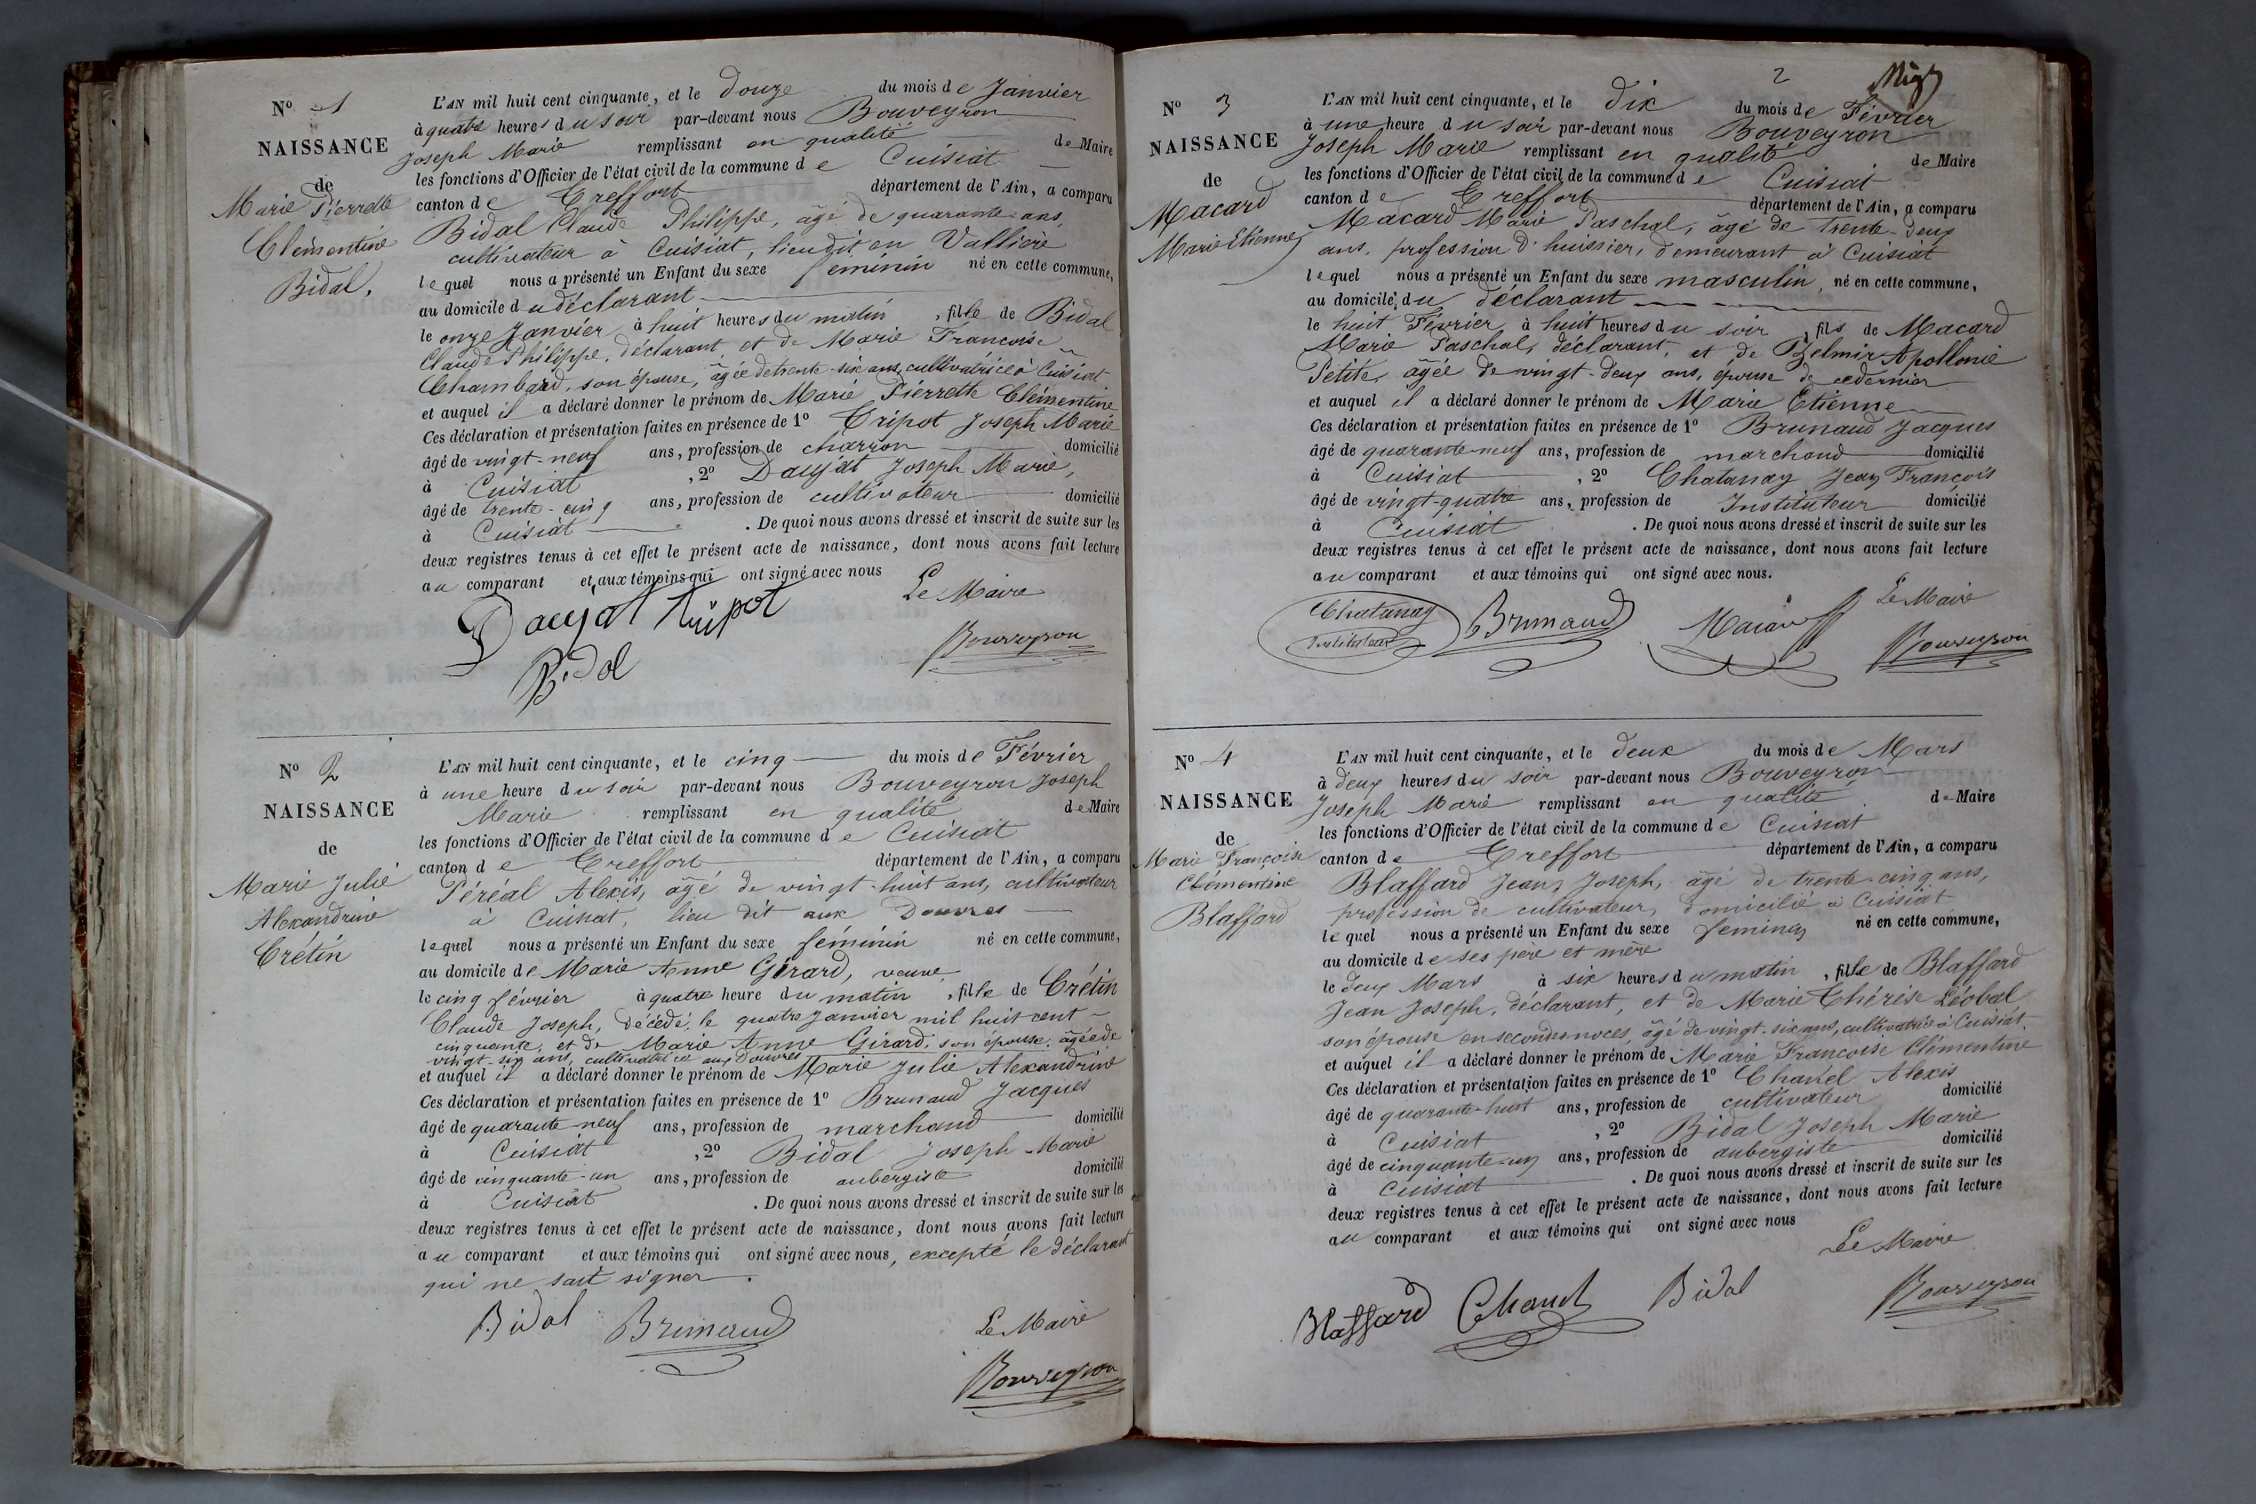 N° 1
NAISSANCE
de
Marie Pierrette
Clémentine
Bidal.
L'AN mil huit cent cinquante, et le douze du mois de Janvier
à quatre heures du soir par-devant nous Bouveyron
Joseph Marie remplissant en qualité de Maire
les fonctions d'Officier de l'état civil de la commune de Cuisiat
canton de Treffort département de l'Ain, a comparu
Bidal Claude Philippe, âgé de quarante ans,
cultivateur à Cuisiat, lieu dit en Vallière
lequel nous a présenté un Enfant du sexe féminin né en cette commune,
au domicile du déclarant
le onze Janvier à huit heures du matin, fille de Bidal
Claude Philippe, déclarant et de Marie Françoise
Chambard, son épouse, âgée de trente-six ans, cultivatrice à Cuisiat
et auquel il a déclaré donner le prénom de Marie Pierrette Clémentine
Ces déclaration et présentation faites en présence de 1° Tripot Joseph Marie
âgé de vingt-neuf ans, profession de charron domicilié
à Cuisiat, 2° Daujat Joseph Marie,
âgé de trente-cinq ans, profession de cultivateur domicilié
à Cuisiat. De quoi nous avons dressé et inscrit de suite sur les
deux registres tenus à cet effet le présent acte de naissance, dont nous avons fait lecture
au comparant et aux témoins qui ont signé avec nous
Le Maire
Daujat tripot
Bouveyron
Bidal
N° 2
NAISSANCE
de
Marie Julie
Alexandrine
Crétin
L'AN mil huit cent cinquante, et le cinq du mois de Février
à une heure du soir par-devant nous Bouveyron Joseph
Marie remplissant en qualité de Maire
les fonctions d'Officier de l'état civil de la commune de Cuisiat
canton de Treffort département de l'Ain, a comparu
Péréal Alexis, âgé de vingt-huit ans, cultivateur
à Cuisiat, lieu dit aux Douvres
lequel nous a présenté un Enfant du sexe féminin né en cette commune,
au domicile de Marie Anne Girard, veuve
le cinq février à quatre heure du matin, fille de Crétin
Claude Joseph, décédé le quatre Janvier mil huit cent
cinquante, et de Marie Anne Girard, son épouse, âgée de
vingt-six ans, cultivatrice aux Douvres
et auquel il a déclaré donner le prénom de Marie Julie Alexandrine
Ces déclaration et présentation faites en présence de 1° Brunaud Jacques
âgé de quarante-neuf ans, profession de marchand domicilié
à Cuisiat, 2° Bidal Joseph-Marie
âgé de cinquante-un ans, profession de aubergiste domicilié
à Cuisiat. De quoi nous avons dressé et inscrit de suite sur les
deux registres tenus à cet effet le présent acte de naissance, dont nous avons fait lecture
au comparant et aux témoins qui ont signé avec nous, excepté le déclarant
qui ne sait signer.
Bidal Brunaud
Le Maire
Bouveyron
2
N° 3
NAISSANCE
de
Macard
Marie Etienne
L'AN mil huit cent cinquante, et le dix du mois de Février
à une heure du soir par-devant nous Bouveyron
Joseph Marie remplissant en qualité de Maire
les fonctions d'Officier de l'état civil de la commune de Cuisiat
canton de Treffort département de l'Ain, a comparu
Macard Marie Paschal, âgé de trente-deux
ans, profession d'huissier, demeurant à Cuisiat
lequel nous a présenté un Enfant du sexe masculin, né en cette commune,
au domicile du déclarant
le huit Février à huit heures du soir, fils de Macard
Marie Paschal, déclarant, et de Zelmir Apollonie
Petite, âgée de vingt-deux ans, épouse de ce dernier
et auquel il a déclaré donner le prénom de Marie Etienne
Ces déclaration et présentation faites en présence de 1° Brunaud Jacques
âgé de quarante-neuf ans, profession de marchand domicilié
à Cuisiat, 2° Chatanay Jean François
âgé de vingt-quatre ans, profession de Instituteur domicilié
à Cuisiat. De quoi nous avons dressé et inscrit de suite sur les
deux registres tenus à cet effet le présent acte de naissance, dont nous avons fait lecture
au comparant et aux témoins qui ont signé avec nous.
Le Maire
Chatanay Brunaud Macard
Instituteur
Bouveyron
N° 4
NAISSANCE
de
Marie Françoise
Clémentine
Blaffard
L'AN mil huit cent cinquante, et le deux du mois de Mars
à deux heures du soir par-devant nous Bouveyron
Joseph Marie remplissant en qualité de Maire
les fonctions d'Officier de l'état civil de la commune de Cuisiat
canton de Treffort département de l'Ain, a comparu
Blaffard Jean Joseph, âgé de trente-cinq ans,
profession de cultivateur, domicilié à Cuisiat
lequel nous a présenté un Enfant du sexe féminin né en cette commune,
au domicile de ses père et mère
le deux Mars à six heures du matin, fille de Blaffard
Jean Joseph, déclarant, et de Marie Thérèse Léobal
son épouse en secondes noces, âgé de vingt-six ans, cultivatrice à Cuisiat.
et auquel il a déclaré donner le prénom de Marie Françoise Clémentine
Ces déclaration et présentation faites en présence de 1° Chanel Alexis
âgé de quarante-huit ans, profession de cultivateur domicilié
à Cuisiat, 2° Bidal Joseph Marie
âgé de cinquante-un ans, profession de aubergiste domicilié
à Cuisiat. De quoi nous avons dressé et inscrit de suite sur les
deux registres tenus à cet effet le présent acte de naissance, dont nous avons fait lecture
au comparant et aux témoins qui ont signé avec nous
Le Maire
Blaffard Chanel Bidal
Bouveyron